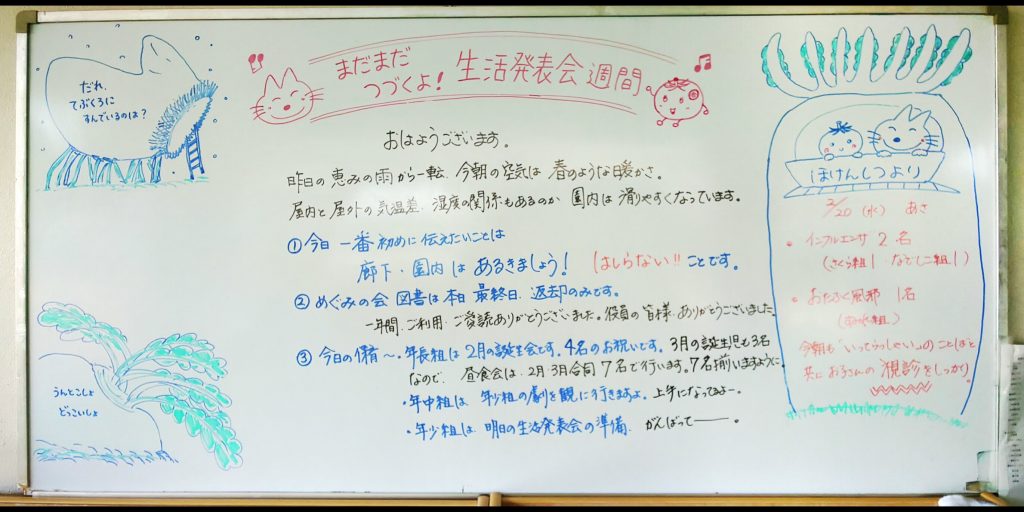 だれ、
てぶくろに
すんでいるのは？
まだまだ
つづくよ！ 生活発表会週間
おはようございます。
昨日の恵みの雨から一転、今朝の空気は 春のような暖かさ。
屋内と屋外の気温差、湿度の関係もあるのか 園内は滑りやすくなっています。
①今日 一番初めに伝えたいことは
廊下・園内は あるきましょう！ はしらない!! ことです。
②めぐみの会 図書は本日 最終日、返却のみです。
一年間、ご利用・ご愛読ありがとうございました。役員の皆様、ありがとうございました。
③今日の保育～・年長組は2月の誕生会です。4名のお祝いです。3月の誕生児も3名
なので、昼食会は、2月・3月合同7名で行います。7名揃いますように
・年中組は、年少組の劇を観に行きますよ。上手になってるよー。
・年少組は、明日の生活発表会の準備、がんばって――。
うんとこしょ
どっこいしょ
ほけんしつより
2/20 (水) あさ
・インフルエンザ 2名
(さくら組1・なでしこ組1)
・おたふく風邪 1名
今朝も「いってらっしゃい」のことばと
共に お子さんの 視診をしっかり